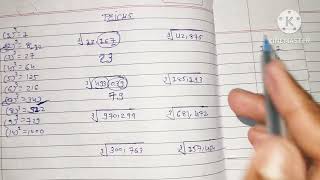 TRICKS
(1)³ = 1
(2)³ = 8
(3)³ = 27
(4)³ = 64
(5)³ = 125
(6)³ = 216
(7)³ = 343
(8)³ = 512
(9)³ = 729
(10)³ = 1000
∛12,167
23
∛42,875
∛493,039
79
∛970,299
∛681,472
∛300,763
KINEMASTER